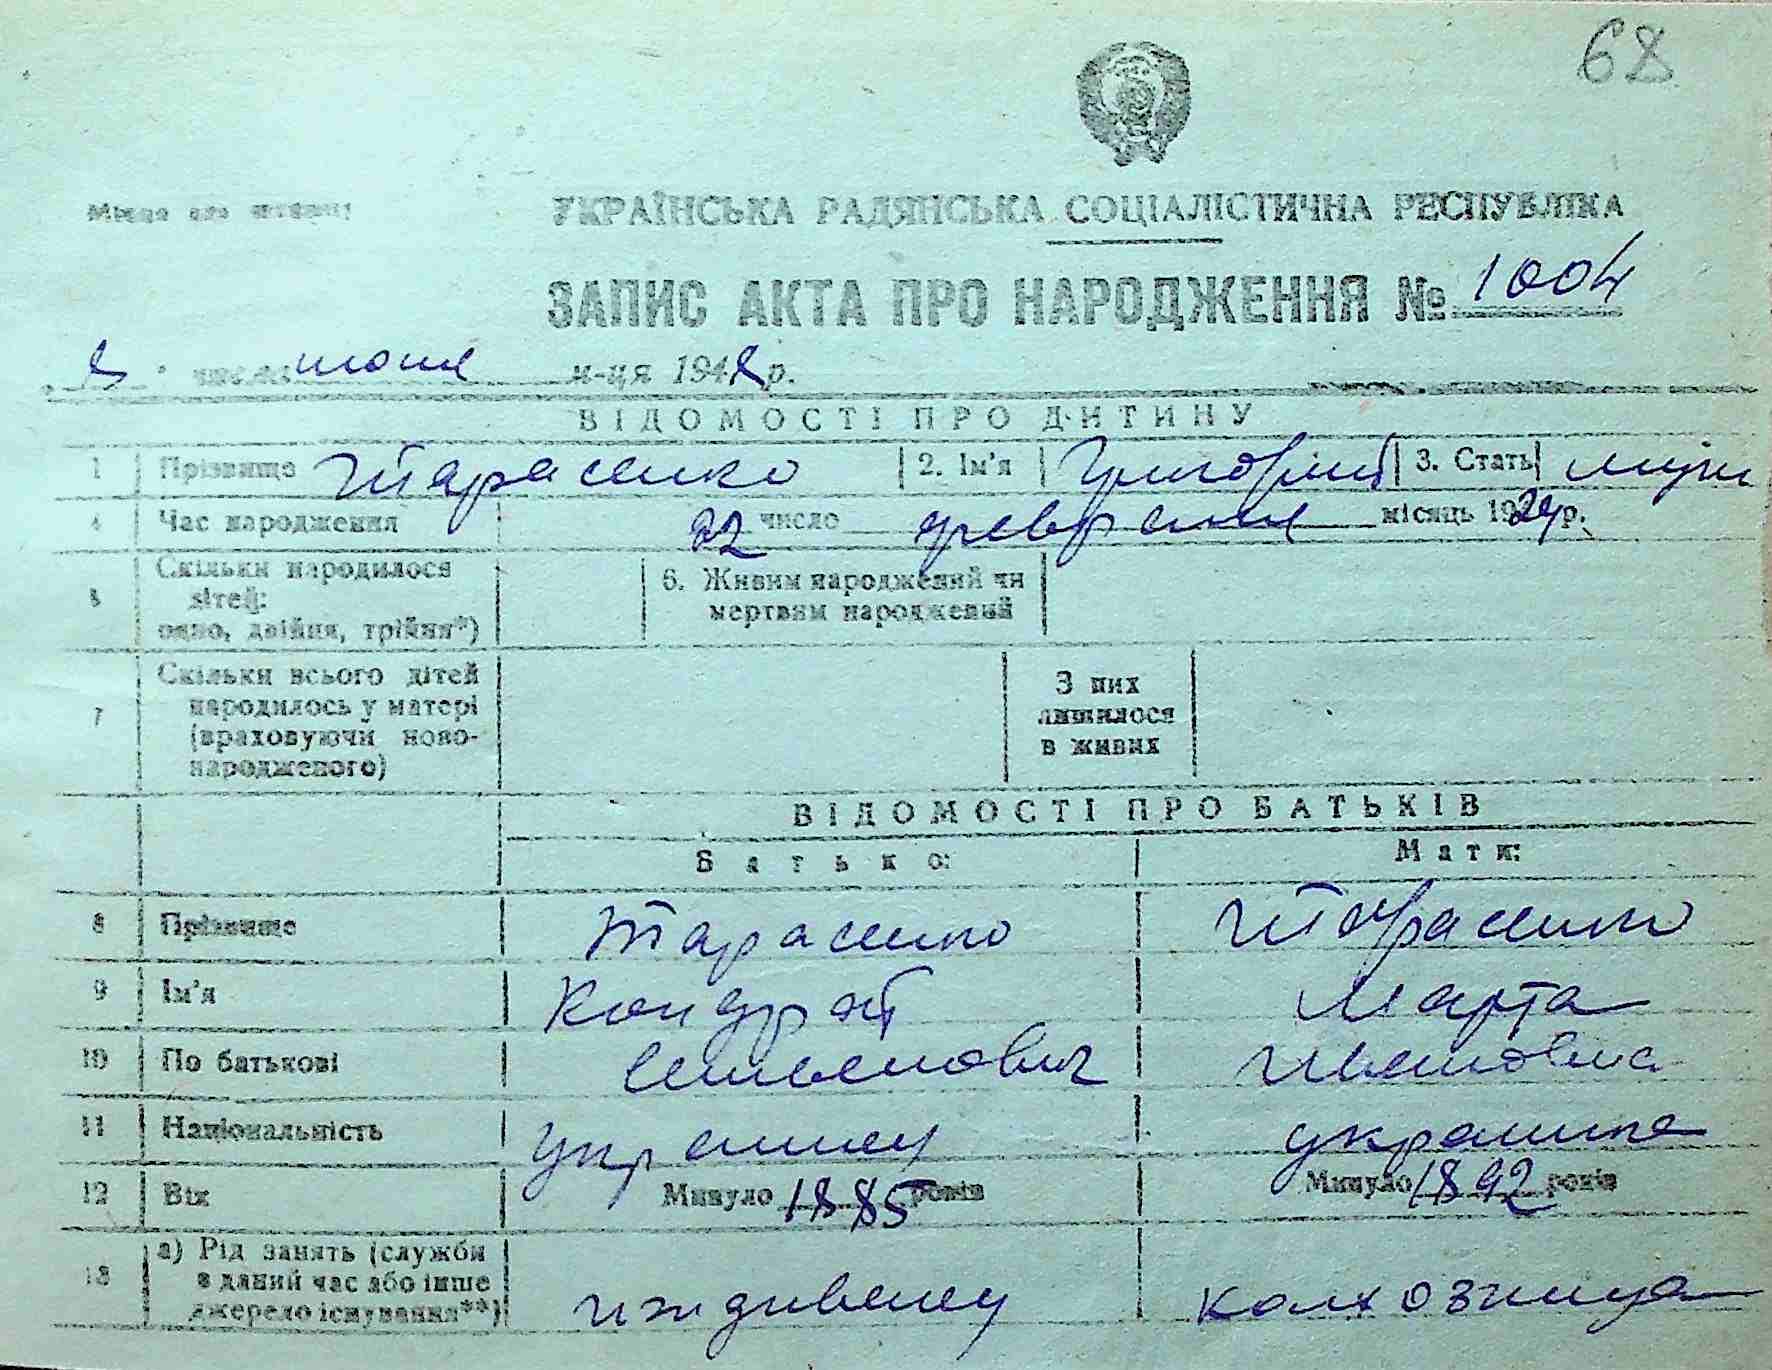 68
Місце для штампу
УКРАЇНСЬКА РАДЯНСЬКА СОЦІАЛІСТИЧНА РЕСПУБЛІКА
ЗАПИС АКТА ПРО НАРОДЖЕННЯ № 1004
8 числа июня м-ця 1948 р.
ВІДОМОСТІ ПРО ДИТИНУ
1 Прізвище Тарасенко 2. Ім'я Григорий 3. Стать муж
4 Час народження 22 число февраля місяць 1924 р.
5 Скільки народилося
дітей:
одно, двійня, трійня*)
6. Живим народжений чи
мертвим народжений
7 Скільки всього дітей
народилось у матері
(враховуючи ново-
народженого)
З них
лишилося
в живих
ВІДОМОСТІ ПРО БАТЬКІВ
Батько: Мати:
8 Прізвище Тарасенко Тарасенко
9 Ім'я Кондрат Марта
10 По батькові Ивановна
11 Національність украинец украинка
12 Вік Минуло 1885 років Минуло 1892 років
13 а) Рід занять (служби
в даний час або інше
джерело існування**)
иждивенец колхозница